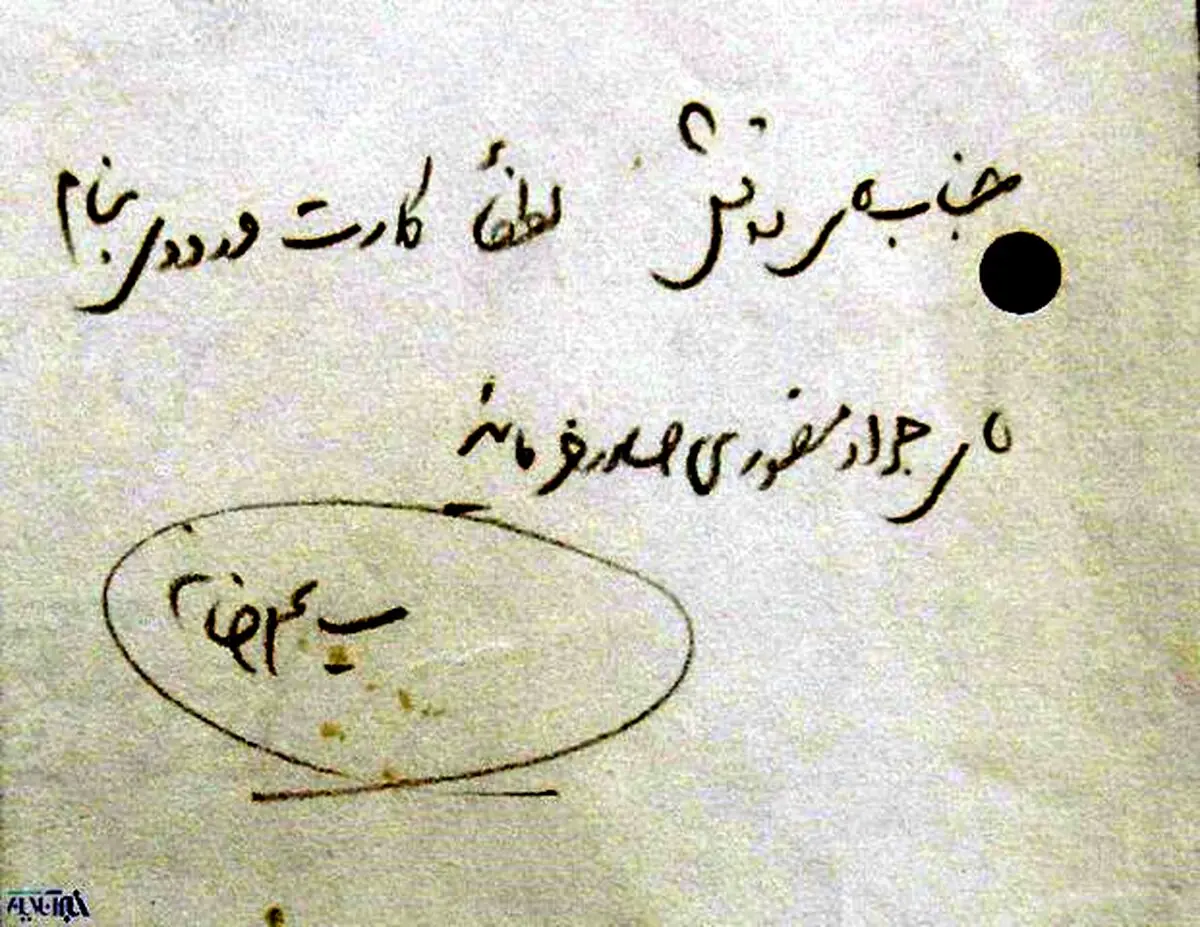 جناب آقای
لطفاً کارت ورودی بنام
آقای جواد منصوری صادر فرمائید
سید
خبرآنلاین